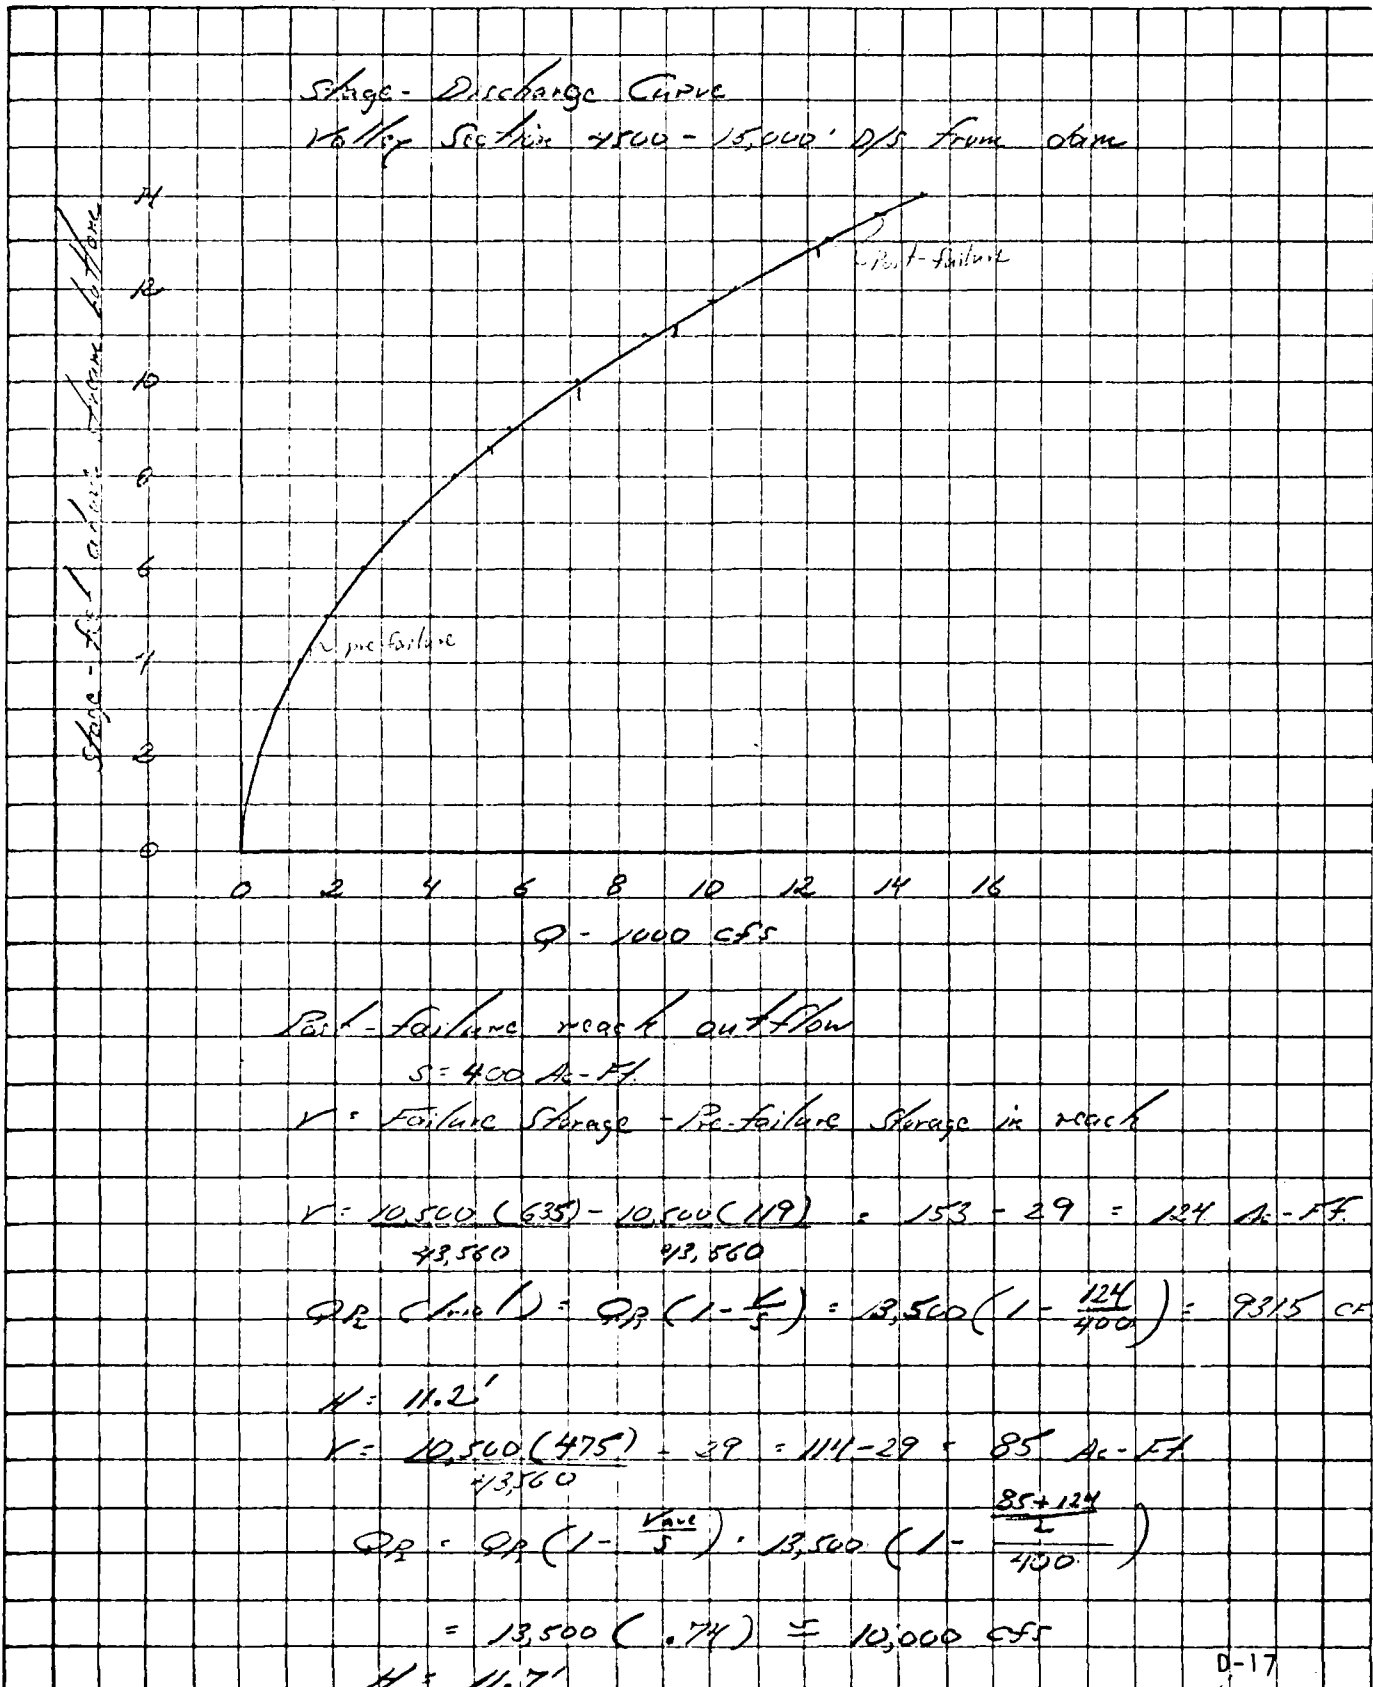 Stage - Discharge Curve
Valley Section 4500 - 15,000' D/S from dam
Stage - feet above stream bottom
14
12
10
8
6
4
2
0
Post-failure
pre failure
0 2 4 6 8 10 12 14 16
Q - 1000 cfs
Post-failure reach outflow
S = 400 Ac-Ft.
V = Failure Storage - Pre-failure Storage in reach
V = 10,500 (635) - 10,500 (119) = 153 - 29 = 124 Ac-Ft.
43,560 43,560
QP2 (trial) = QP1 (1 - V/S) = 13,500 (1 - 124/400) = 9315 CF
H = 11.2'
V = 10,500 (475) - 29 = 114 - 29 = 85 Ac-Ft.
43,560
QP2 = QP1 (1 - Vave/S) = 13,500 (1 - 85+124/2/400)
= 13,500 (.74) = 10,000 cfs
H = 11.7'
D-17